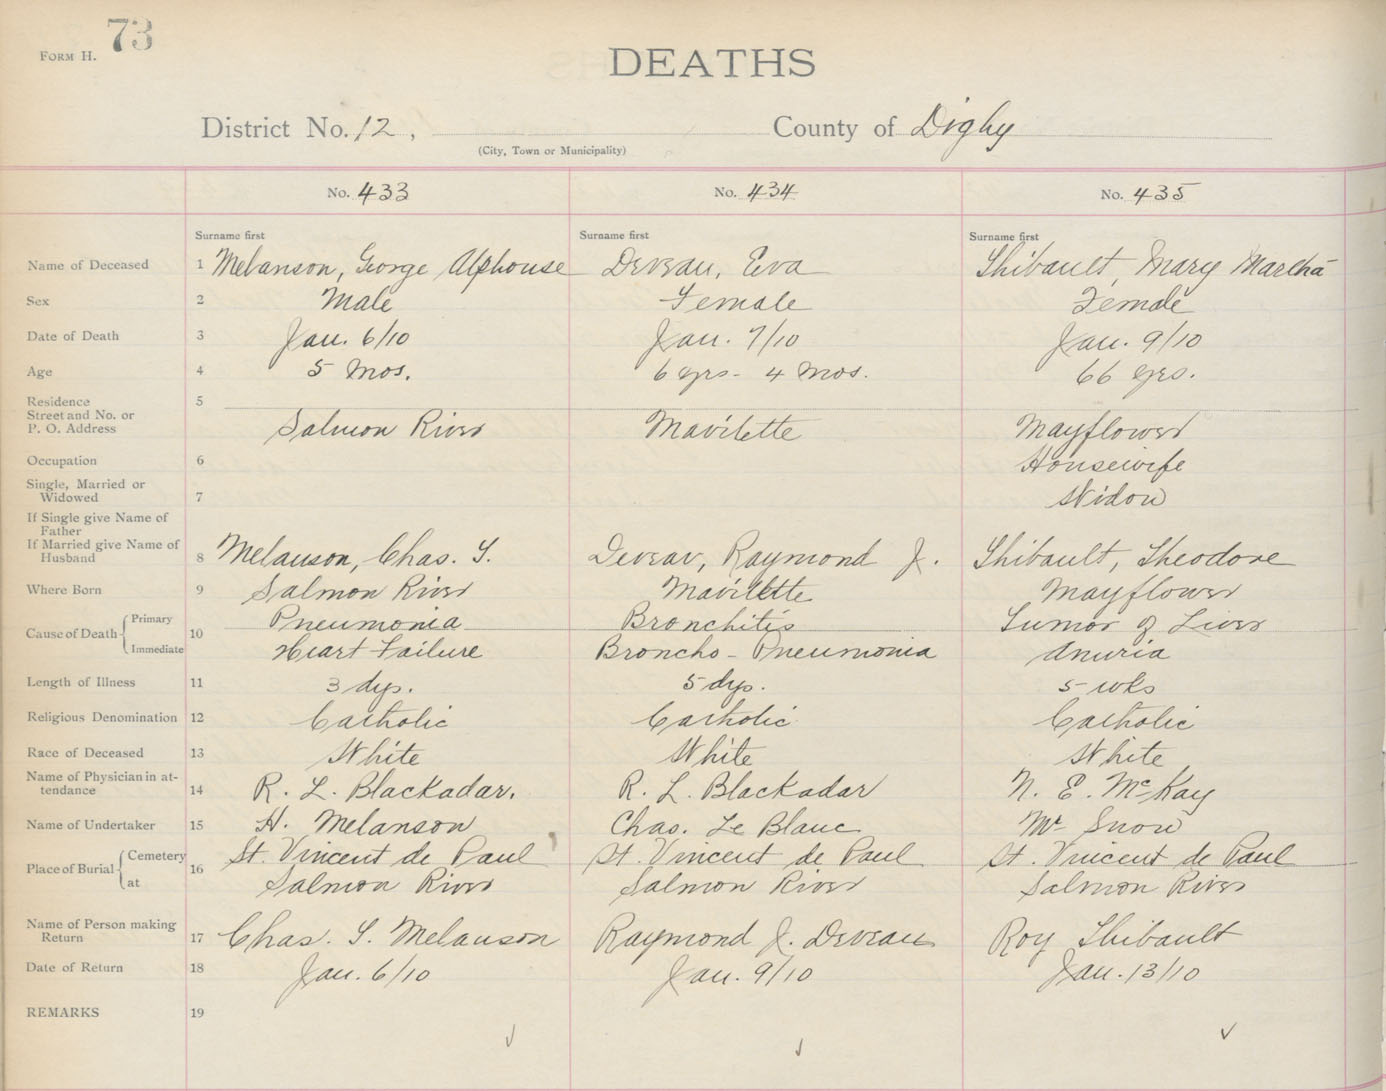 FORM H. 73
DEATHS
District No. 12, County of Digby
(City, Town or Municipality)
No. 433 No. 434 No. 435
Surname first Surname first Surname first
Name of Deceased 1 Melanson, George Alphouse Deveau, Eva Thibault, Mary Martha
Sex 2 Male Female Female
Date of Death 3 Jan. 6/10 Jan. 7/10 Jan. 9/10
Age 4 5 Mos. 6 yrs - 4 Mos. 66 yrs.
Residence 5
Street and No. or
P. O. Address Salmon River Mavilette Mayflower
Occupation 6 Housewife
Single, Married or
Widowed 7 Widow
If Single give Name of
Father
If Married give Name of
Husband 8 Melanson, Chas. S. Deveau, Raymond J. Thibault, Theodore
Where Born 9 Salmon River Mavilette Mayflower
Cause of Death 10 Primary Pneumonia Bronchitis Tumor of Liver
Immediate Heart Failure Broncho-Pneumonia Anuria
Length of Illness 11 3 dys. 5 dys. 5 wks
Religious Denomination 12 Catholic Catholic Catholic
Race of Deceased 13 White White White
Name of Physician in at-
tendance 14 R. L. Blackadar. R. L. Blackadar N. E. McKay
Name of Undertaker 15 H. Melanson Chas. Le Blanc Mr Snow
Place of Burial 16 Cemetery St. Vincent de Paul St. Vincent de Paul St. Vincent de Paul
at Salmon River Salmon River Salmon River
Name of Person making
Return 17 Chas. S. Melanson Raymond J. Deveau Roy Thibault
Date of Return 18 Jan. 6/10 Jan. 9/10 Jan. 13/10
REMARKS 19